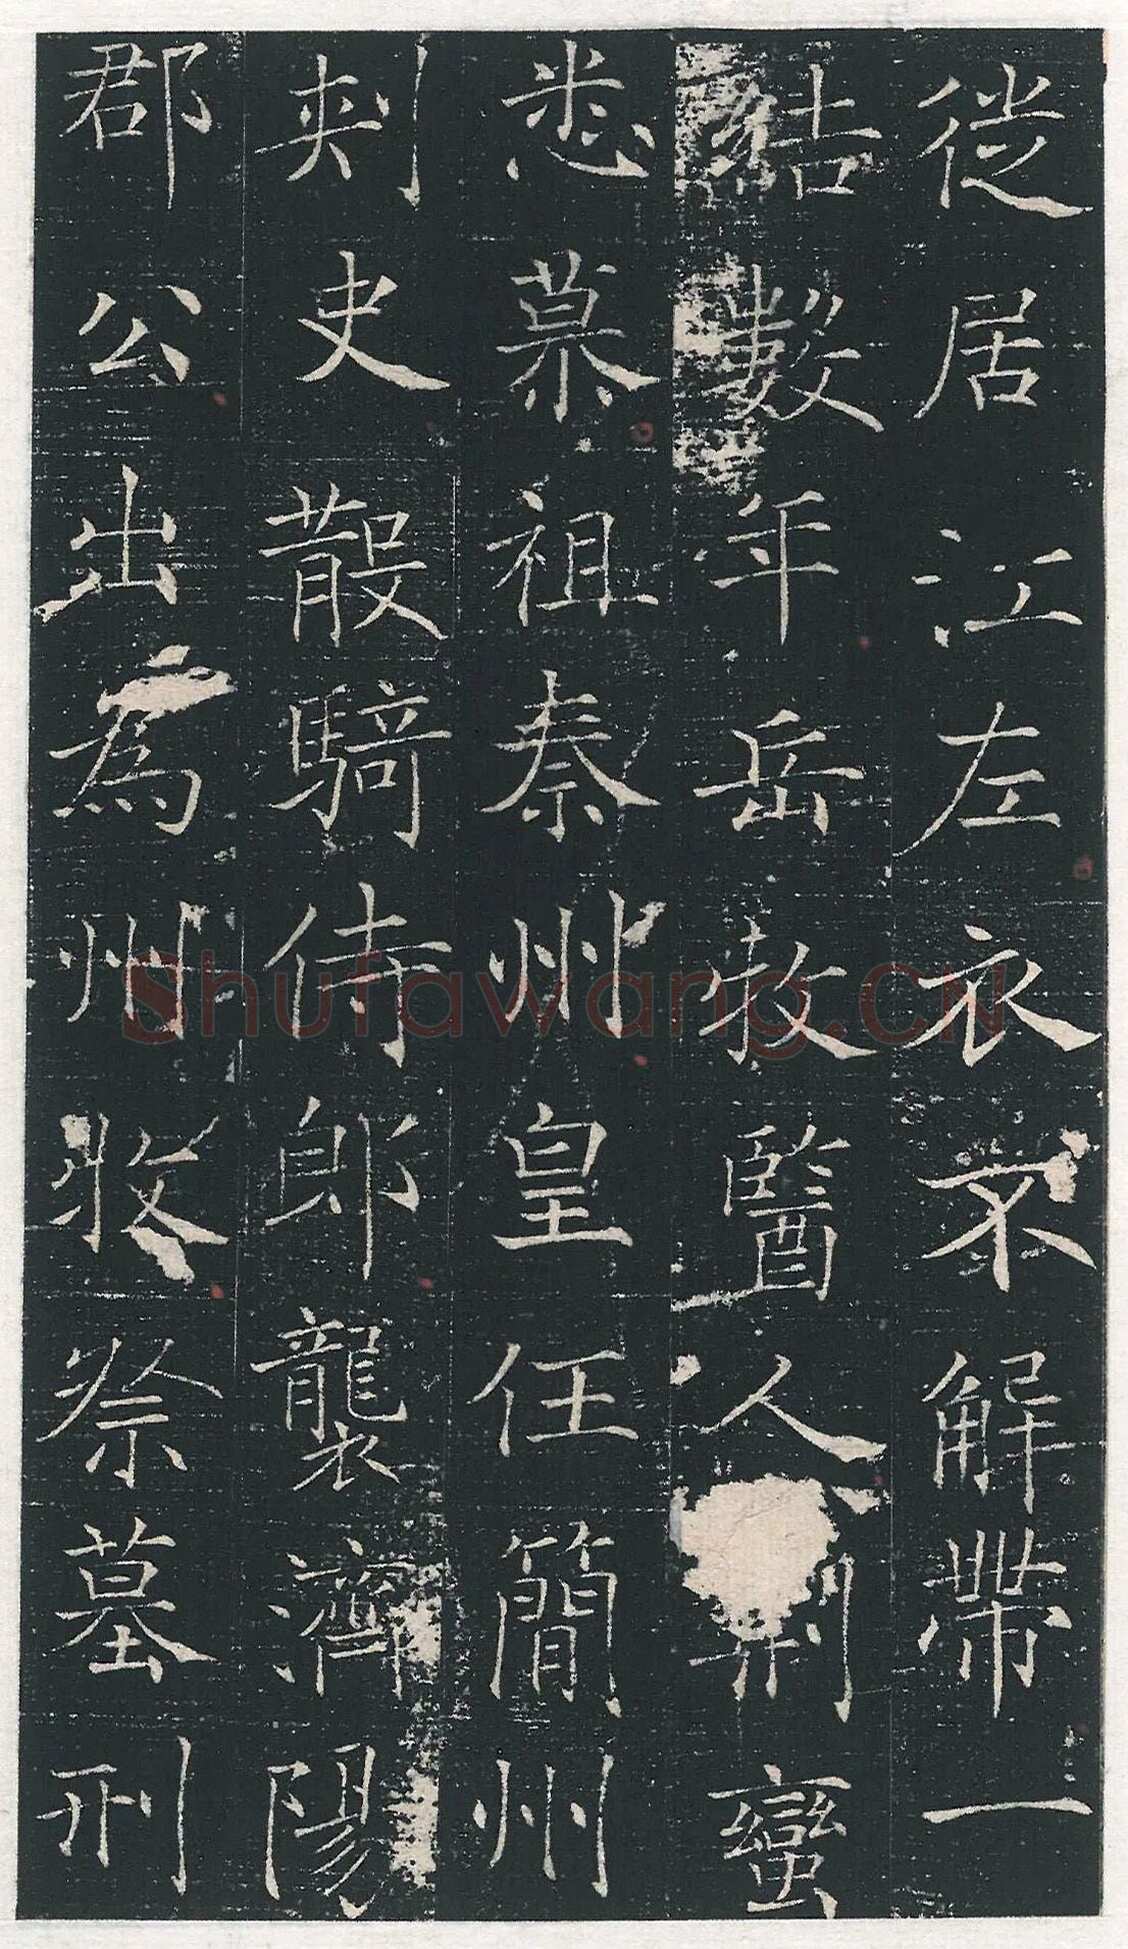 徙居江左衣不解帶一
結數年岳教醫人荊蠻
悉慕祖秦州皇任簡州
刺史散騎侍郎襲濟陽
郡公出為州牧祭墓刑
Shufawang.CN